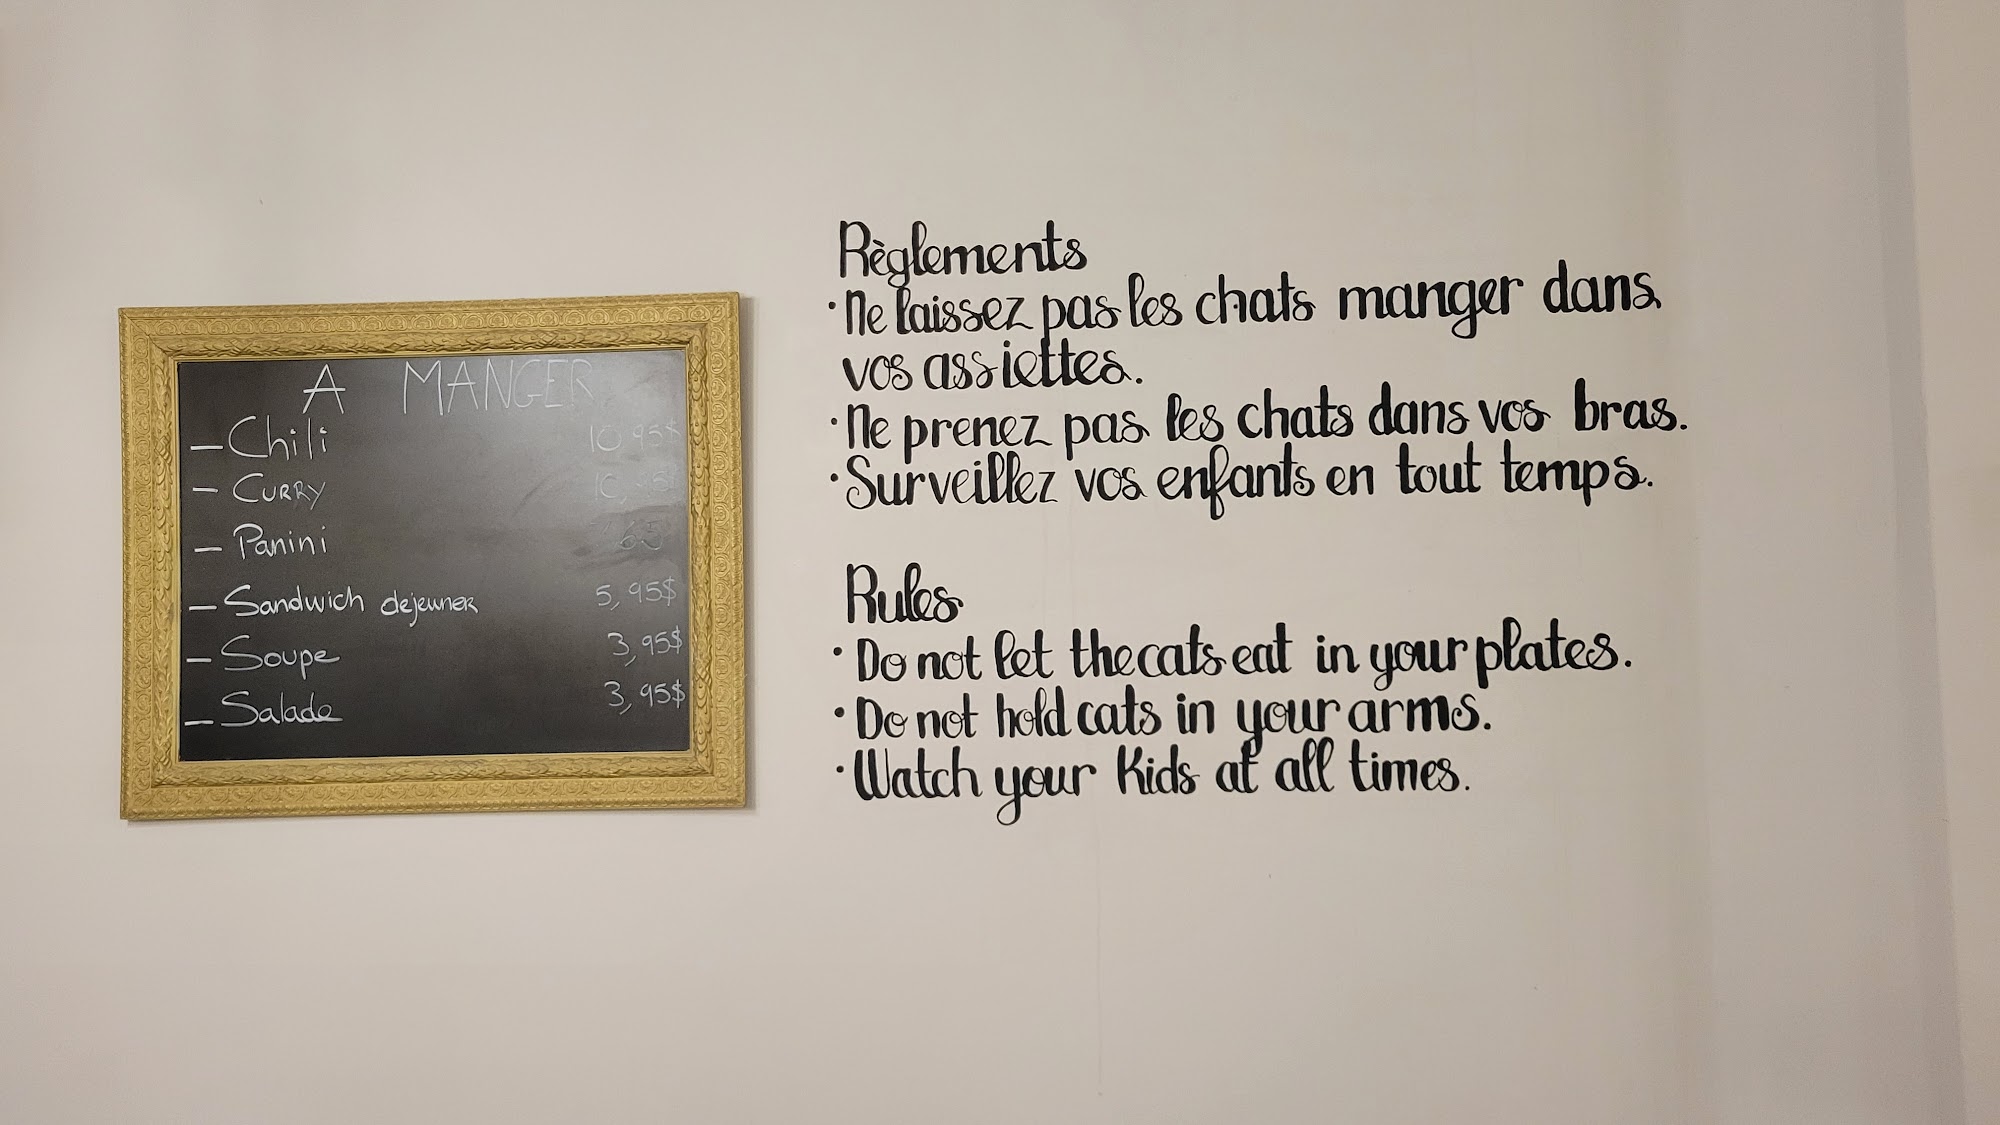 A MANGER
– Chili 10,95$
– CURRY
– Panini
– Sandwich dejeuner 5,95$
– Soupe 3,95$
– Salade 3,95$
Règlements
· Ne laissez pas les chats manger dans
vos assiettes.
· Ne prenez pas les chats dans vos bras.
· Surveillez vos enfants en tout temps.
Rules
· Do not let the cats eat in your plates.
· Do not hold cats in your arms.
· Watch your Kids at all times.